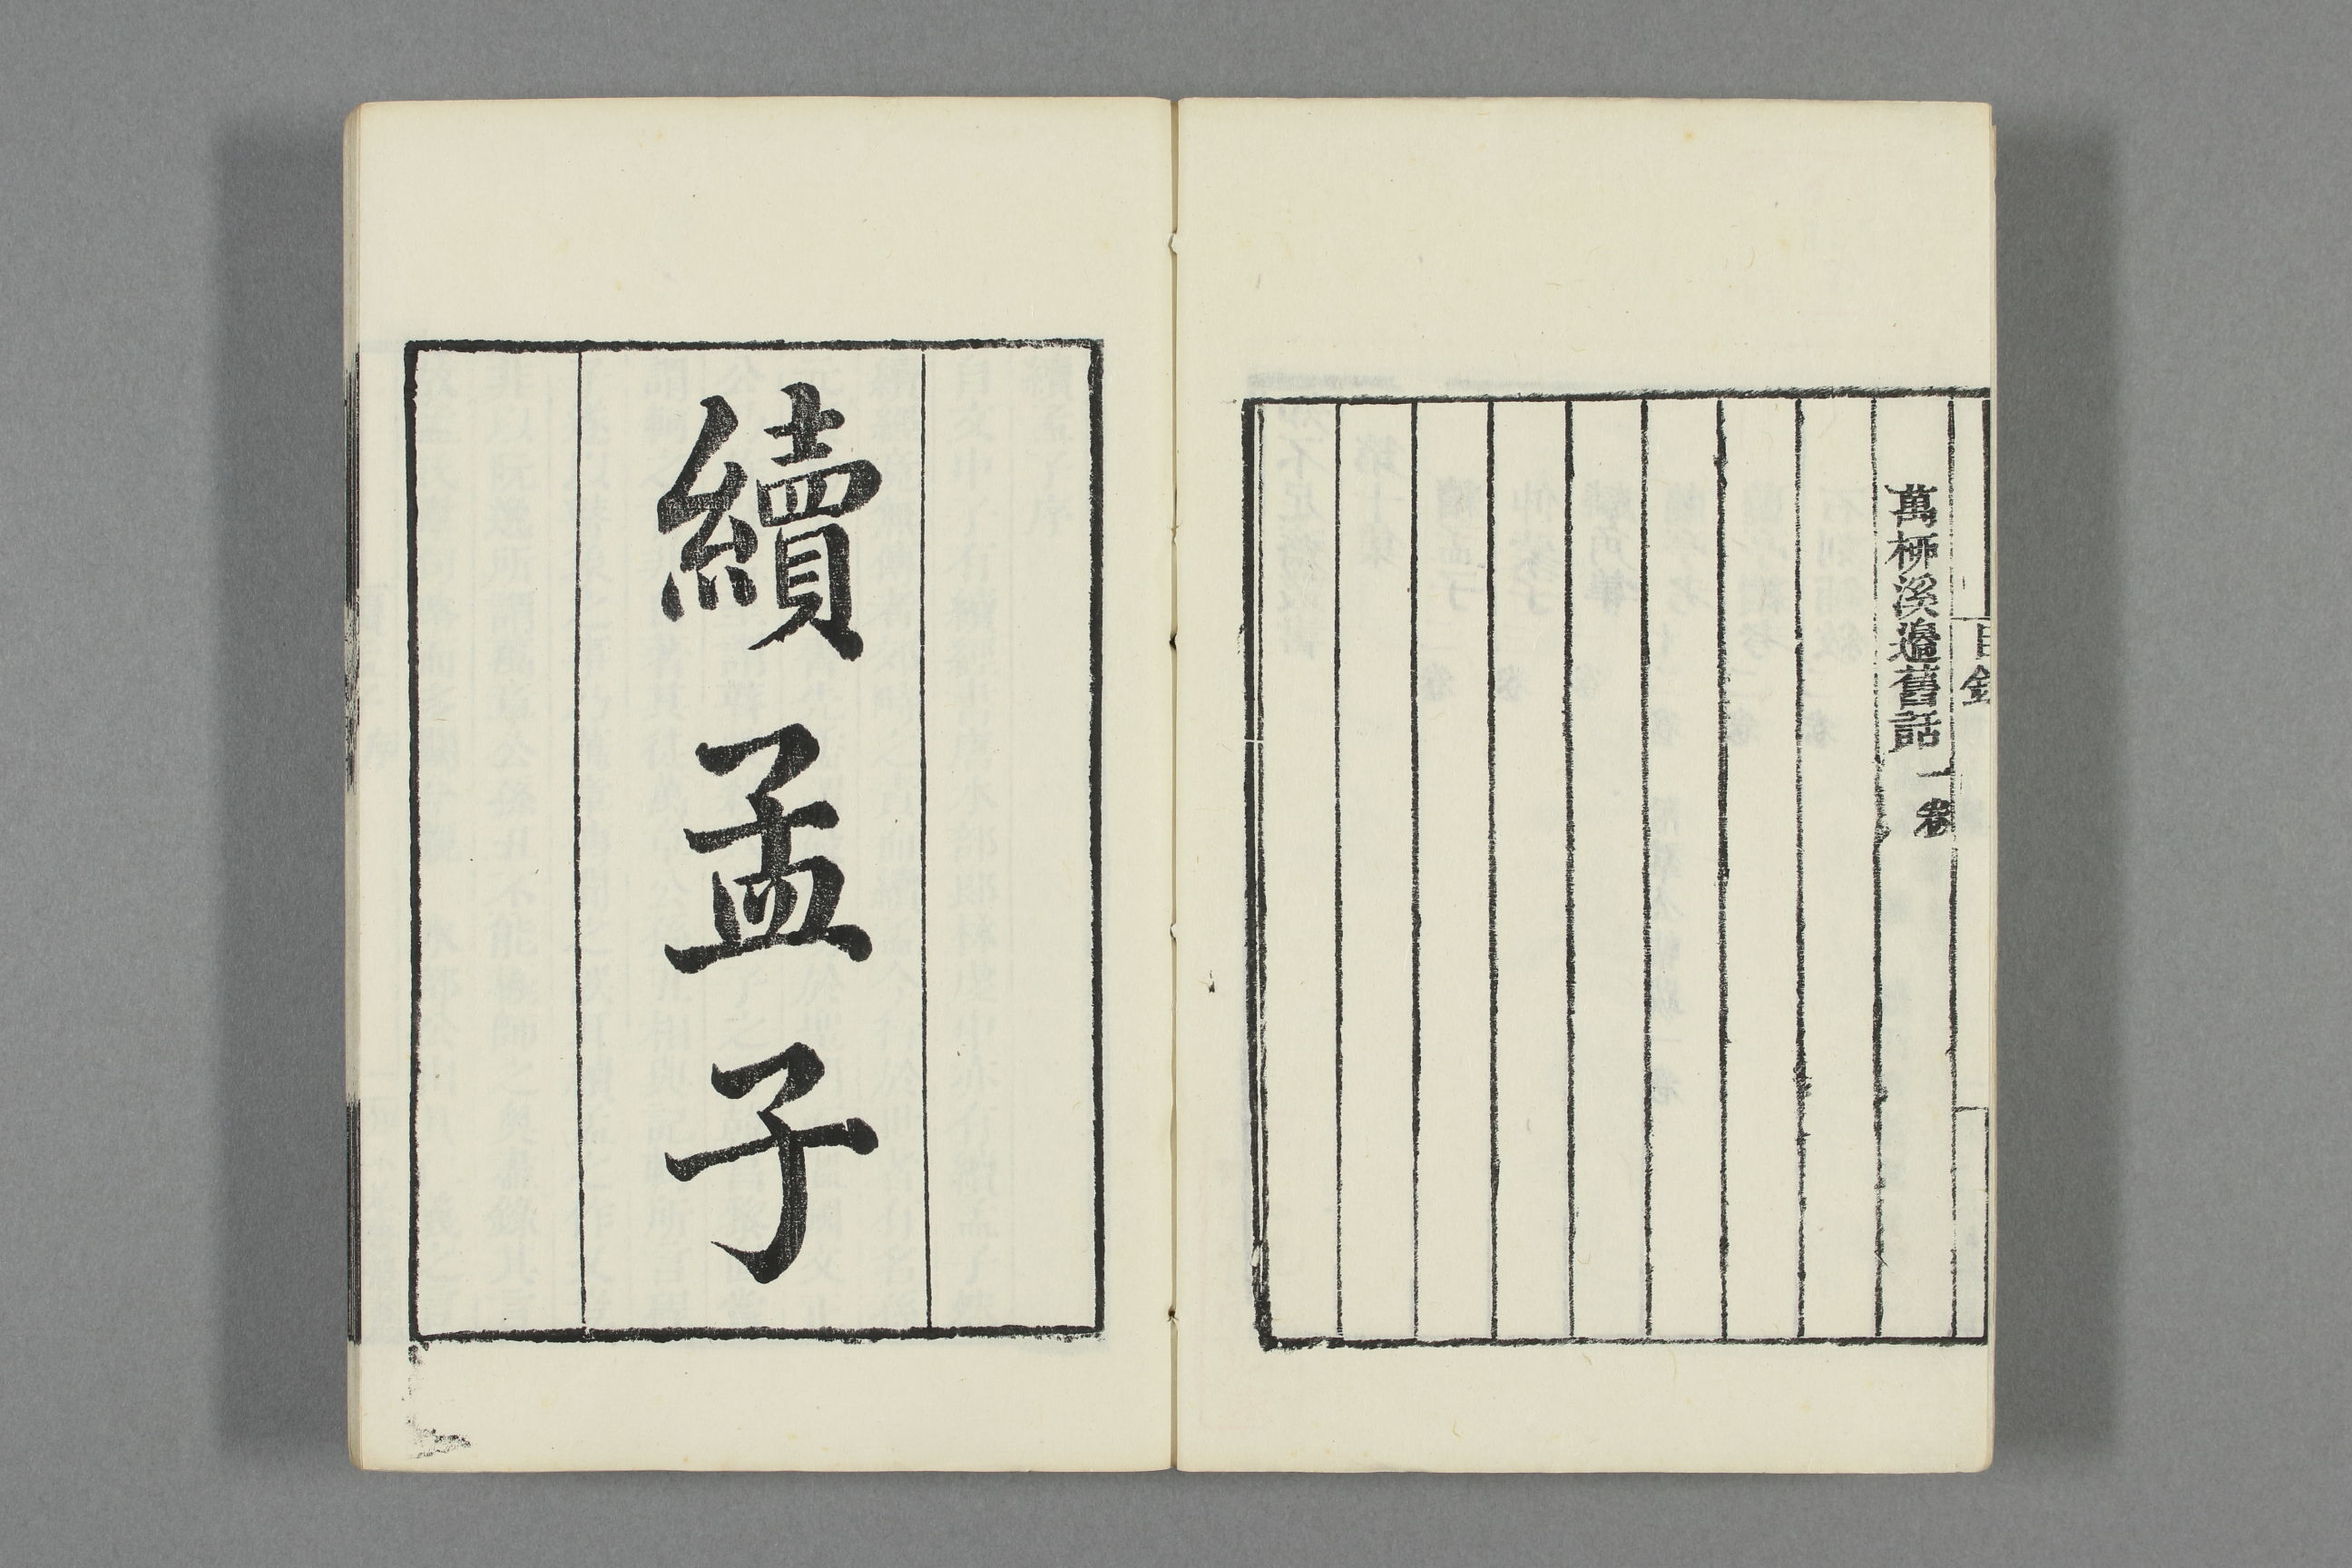 目錄
萬柳溪邊舊話一卷
續孟子